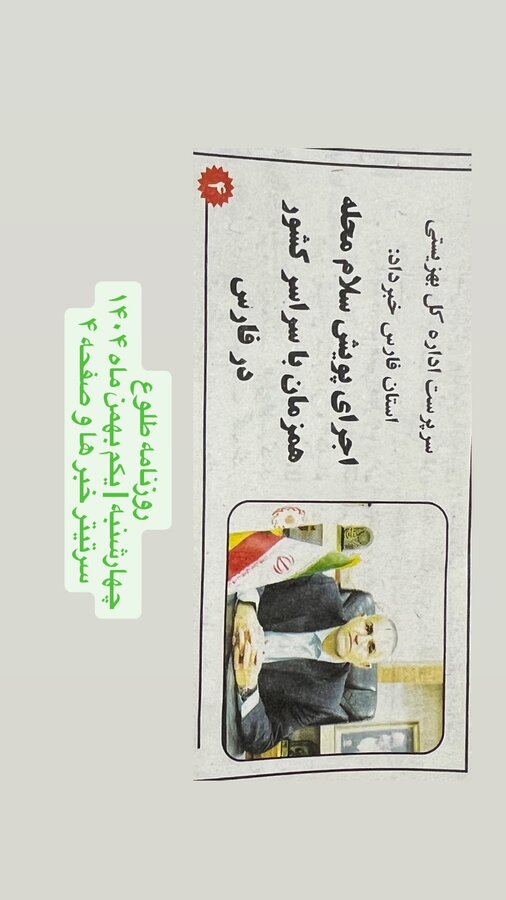 سرپرست اداره کل بهزیستی
استان فارس خبر داد:
اجرای پویش سلام محله
همزمان با سراسر کشور
در فارس
۴
روزنامه طلوع
چهارشنبه | یکم بهمن ماه ۱۴۰۴
سرتیتر خبر ها و صفحه ۴